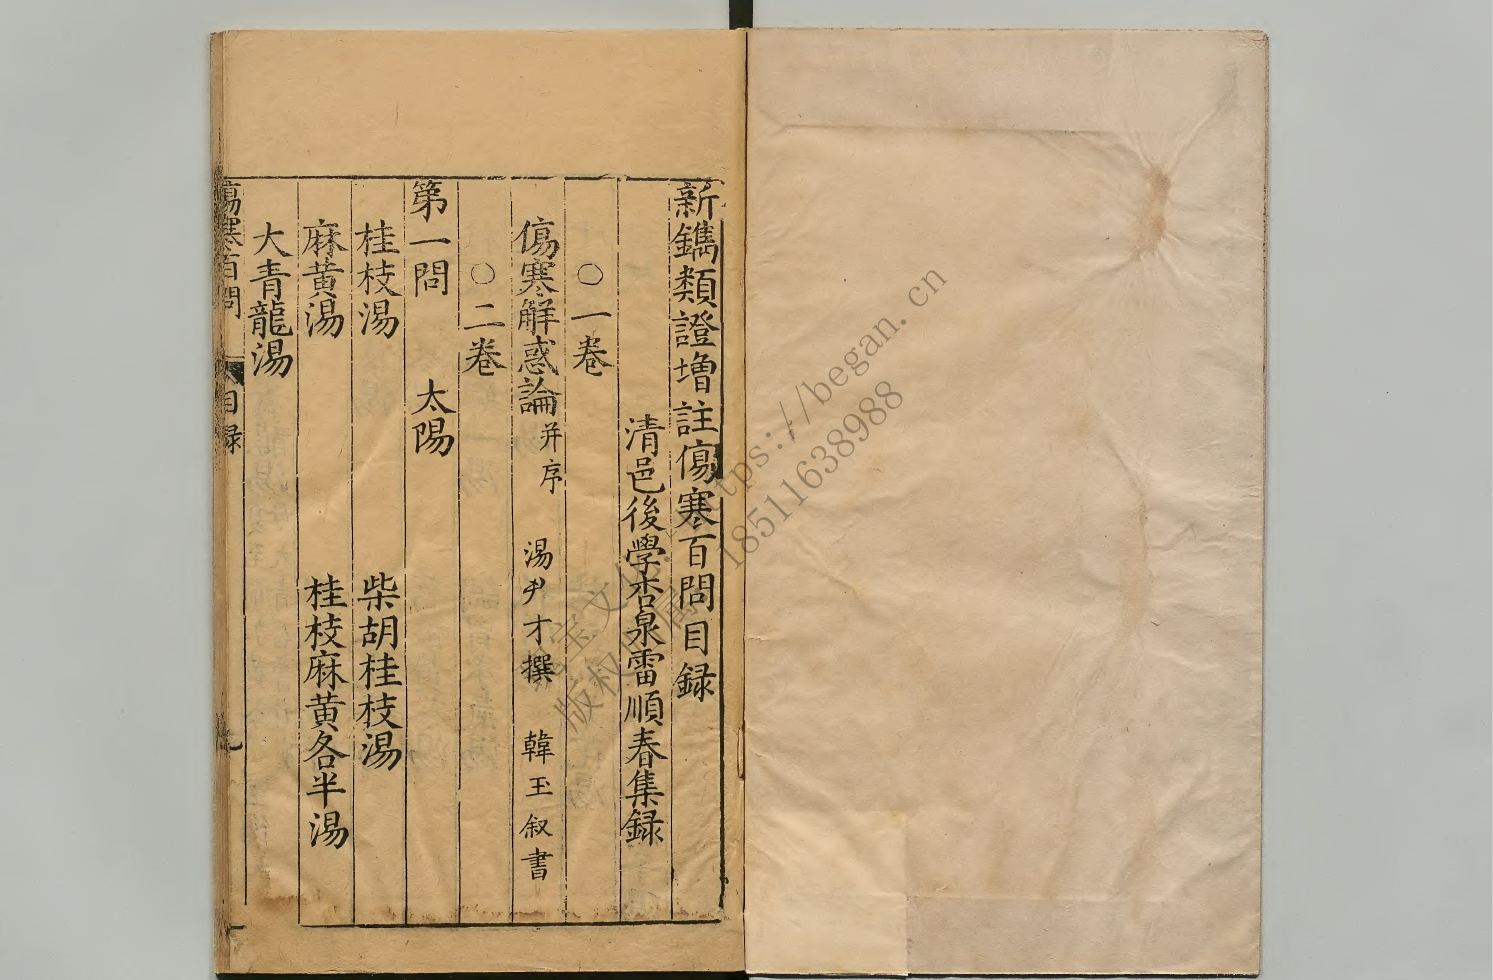 新鐫類證增註傷寒百問目録
清邑後學杏泉雷順春集録
○一卷
傷寒解惑論并序 湯尹才撰 韓玉叙書
○二卷
第一問 太陽
桂枝湯 柴胡桂枝湯
麻黄湯 桂枝麻黄各半湯
大青龍湯
傷寒百問 目録
https://began.cn
18511638988